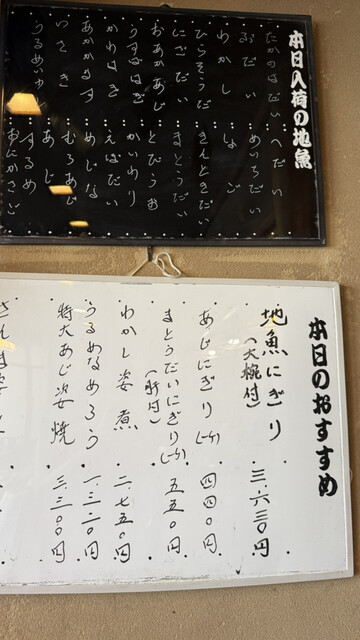 本日入荷の地魚
たかのはだい
へだい
ぶだい
めいちだい
わかし
しょご
ひらそうだ
きんときだい
にざだい
まとうだい
おあかあじ
とびうお
うすばはぎ
かいわり
かわはぎ
えぼだい
あかかます
めじな
いさき
むろあじ
うるめいわし
あじ
するめ
おにかさご
本日のおすすめ
地魚にぎり 三、六三〇円
(大椀付)
あじにぎり(一ケ) 四四〇円
まとうだいにぎり(一ケ) 五五〇円
(肝付)
わかし姿煮 二、七五〇円
うるめなめろう 一、三二〇円
特大あじ姿焼 三、三〇〇円